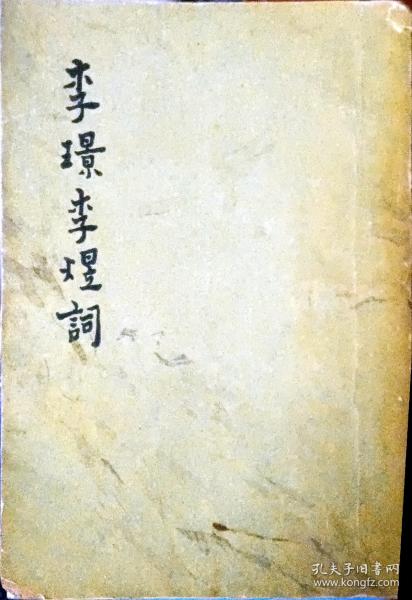 李璟李煜詞
孔夫子旧书网
www.kongfz.com